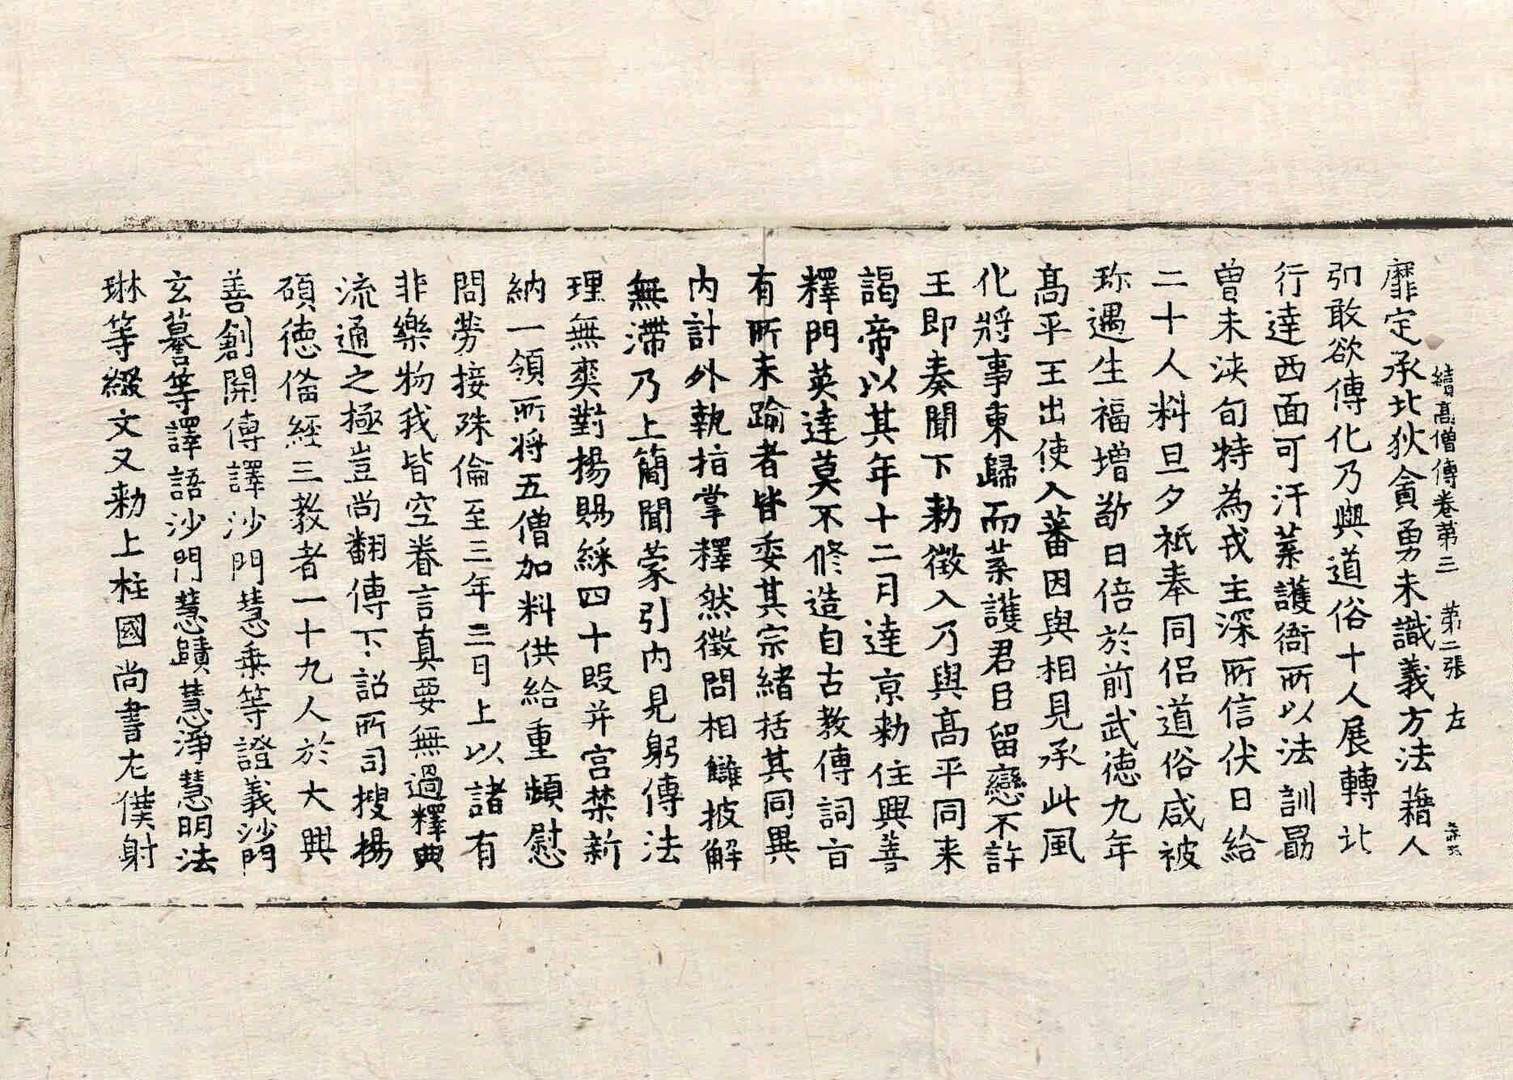 靡定承北狄貪勇未識義方法藉人
續高僧傳卷第三 第二張 左
引敢欲傳化乃與道俗十人展轉北
行達西面可汗葉護衙所以法訓勗
曾未浹旬特為戎主深所信伏日給
二十人料旦夕祗奉同侶道俗咸被
珎遇生福增敬日倍於前武德九年
高平王出使入蕃因與相見承此風
化將事東歸而葉護君臣留戀不許
王即奏聞下勑徵入乃與高平同来
謁帝以其年十二月達京勑住興善
釋門英達莫不修造自古教傳詞旨
有所未踰者皆委其宗緒括其同異
內計外執指掌釋然徵問相讎披解
無滯乃上簡聞蒙引內見躬傳法
理無爽對揚賜綵四十段并宮禁新
納一領所將五僧加料供給重頻慰
問勞接殊倫至三年三月上以諸有
非樂物我皆空眷言真要無過釋典
流通之極豈尚翻傳下詔所司搜揚
碩德俻經三教者一十九人於大興
善創開傳譯沙門慧乗等證義沙門
玄謩等譯語沙門慧賾慧淨慧明法
琳等綴文又勑上柱國尚書左僕射